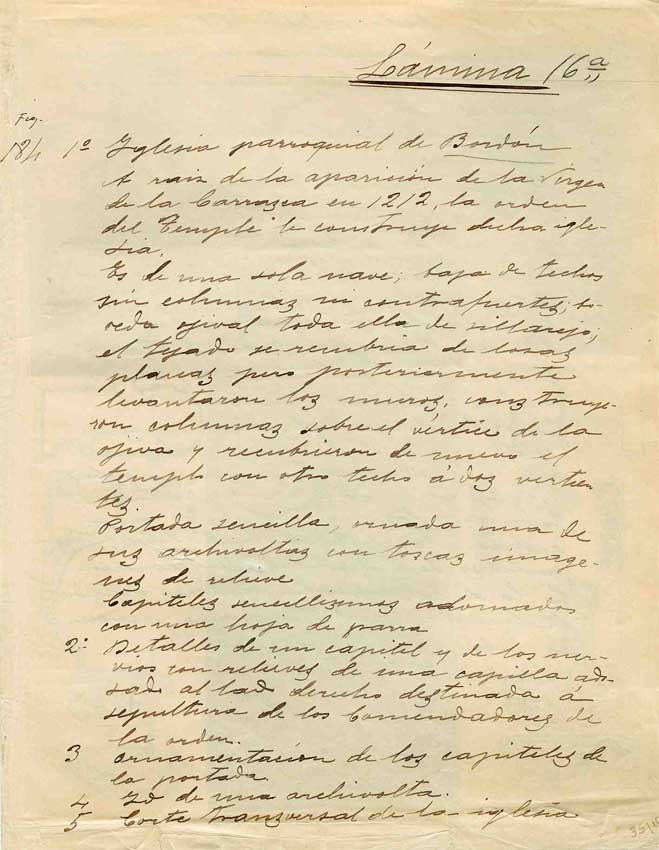 Lámina 16ª
Fig.
184 1º Iglesia parroquial de Bordón
A raiz de la aparición de la Virgen
de la Carrazca en 1212, la orden
del Temple le construye dicha igle-
sia.
Es de una sola nave; baja de techos
sin columnaz ni contrafuertez; bo-
veda ojival toda ella de sillarejo;
el tejado se recubria de losaz
planaz pero posteriormente
levantaron loz muroz, conztruye-
ron columnaz sobre el vértice de la
ojiva y recubrieron de nuevo el
templo con otro techo á doz vertien-
tez
Portada sencilla, ornada una de
suz archivoltaz con toscaz image-
nez de relieve
Capitelez sencillizimoz adornados
con una hoja de parra
2º Detallez de un capitel y de loz ner-
vios con relievez de una capilla ado-
sada al lado derecho deztinada á
sepultura de los Comendadorez de
la orden.
3 Ornamentación de los capitelez de
la portada
4 Id de una archivolta.
5 Corte tranzversal de la iglesia